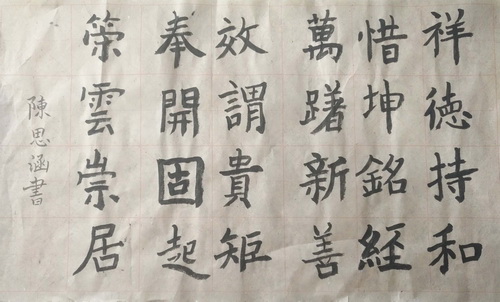 祥德持和
惜坤銘經
萬躇新善
效謂貴矩
奉開固起
築雲崇居
陳思涵書